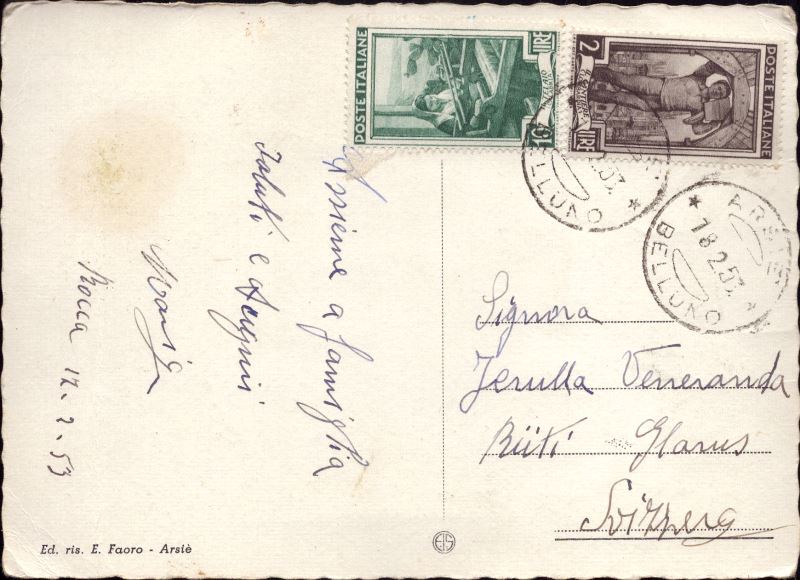 Assieme a famiglia
Saluti e Auguri
Maria
Rocca 12.2.53
Ed. ris. E. Faoro - Arsiè
POSTE ITALIANE
LIRE 10
POSTE ITALIANE
2 LIRE
BELLUNO
ARSIE
18.2.53
BELLUNO
Signora
Jerulla Veneranda
Rüti Glarus
Svizzera